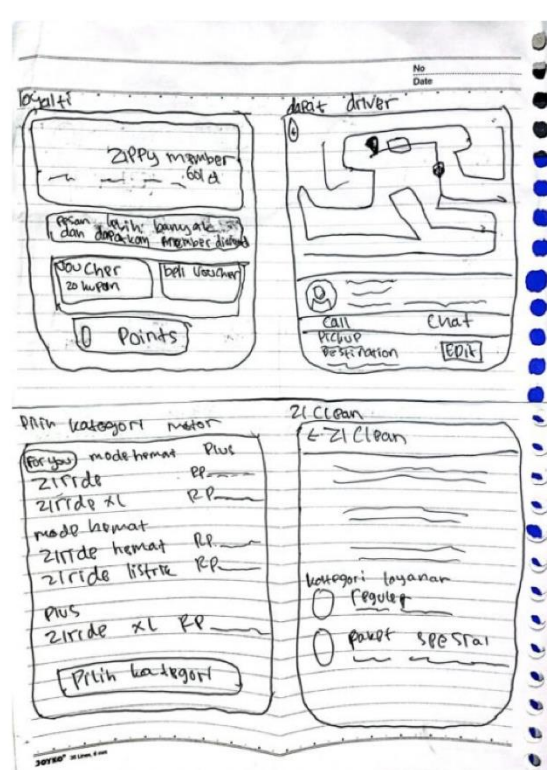 No
Date
loyalti
Zippy member
Gold
Pesan lebih banyak
dan dapatkan member diatas
Voucher
20 kupon
beli Voucher
0 Points
dapat driver
Call
Chat
Pickup
Destination
EDit
Pilih kategori motor
For you mode hemat Plus
Ziride RP
Ziride XL RP
mode hemat
Ziride hemat RP
Ziride listrik RP
Plus
Ziride XL RP
Pilih kategori
ZI Clean
← ZI Clean
kategori layanan
reguler
paket spesial
JOYKO